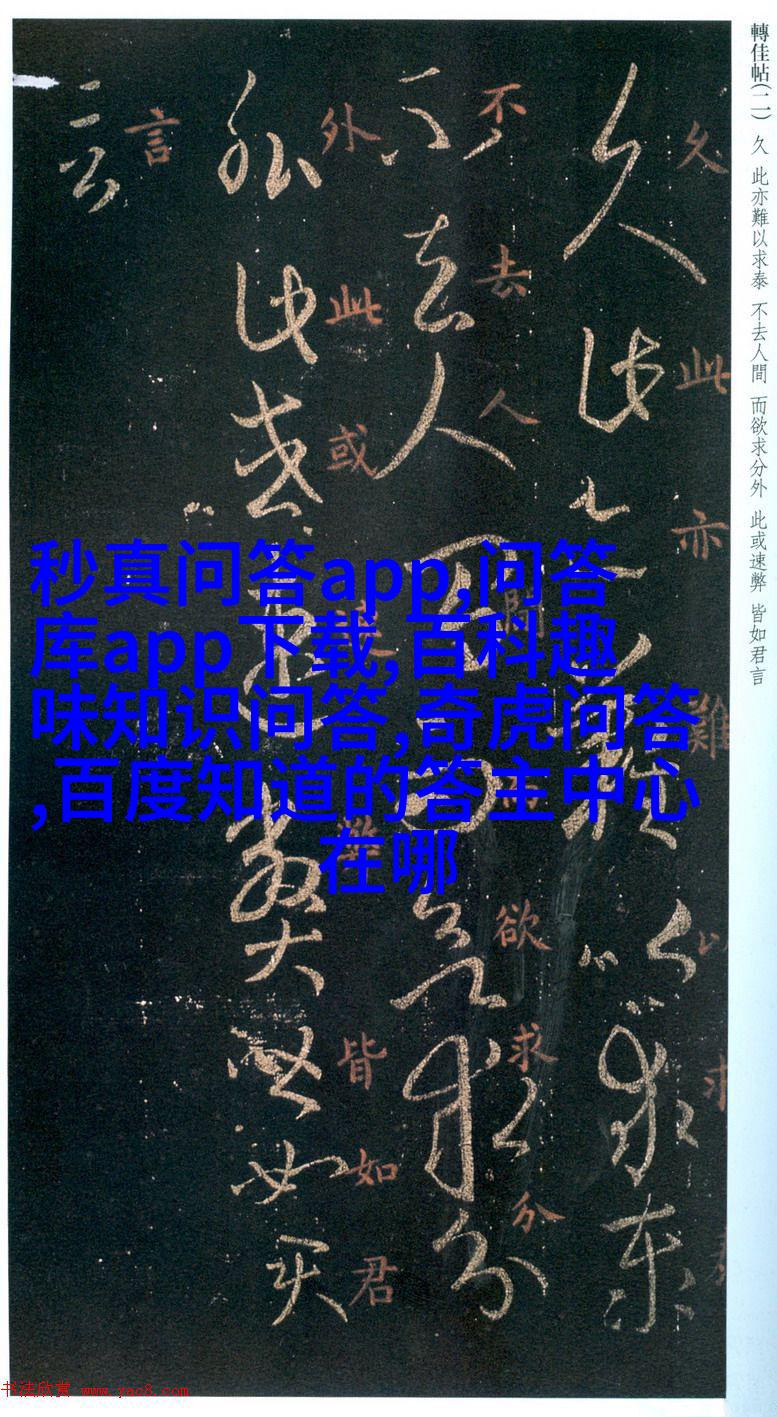 轉佳帖(二) 久 此亦難以求泰 不去人間 而欲求分外 此或速弊 皆如君言
久此亦難以求
不去人間而欲求分
外此或速弊皆如君
言
秒真问答app,问答
库app下载,百科趣
味知识问答,奇虎问答
,百度知道的答主中心
在哪
书法欣赏 www.yac8.com